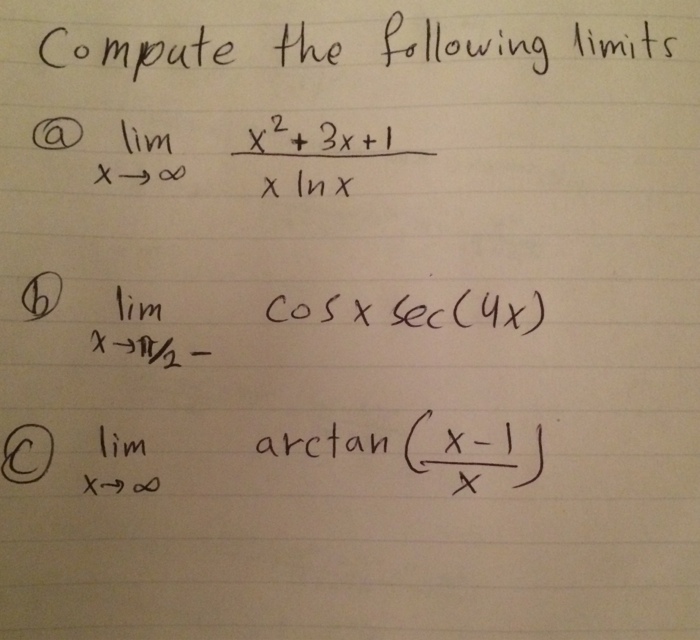 Compute the following limits
(a) lim x²+3x+1
x→∞ x ln x
(b) lim cos x sec(4x)
x→π/2−
(c) lim arctan(x-1
x→∞ x)